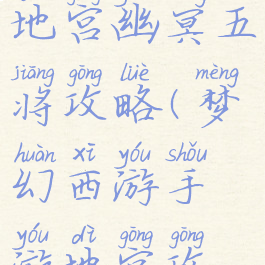 地宫幽冥五
jiāng gōng lüè mèng
将攻略(梦
huàn xī yóu shǒu
幻西游手
yóu dì gōng gōng
游地宫攻